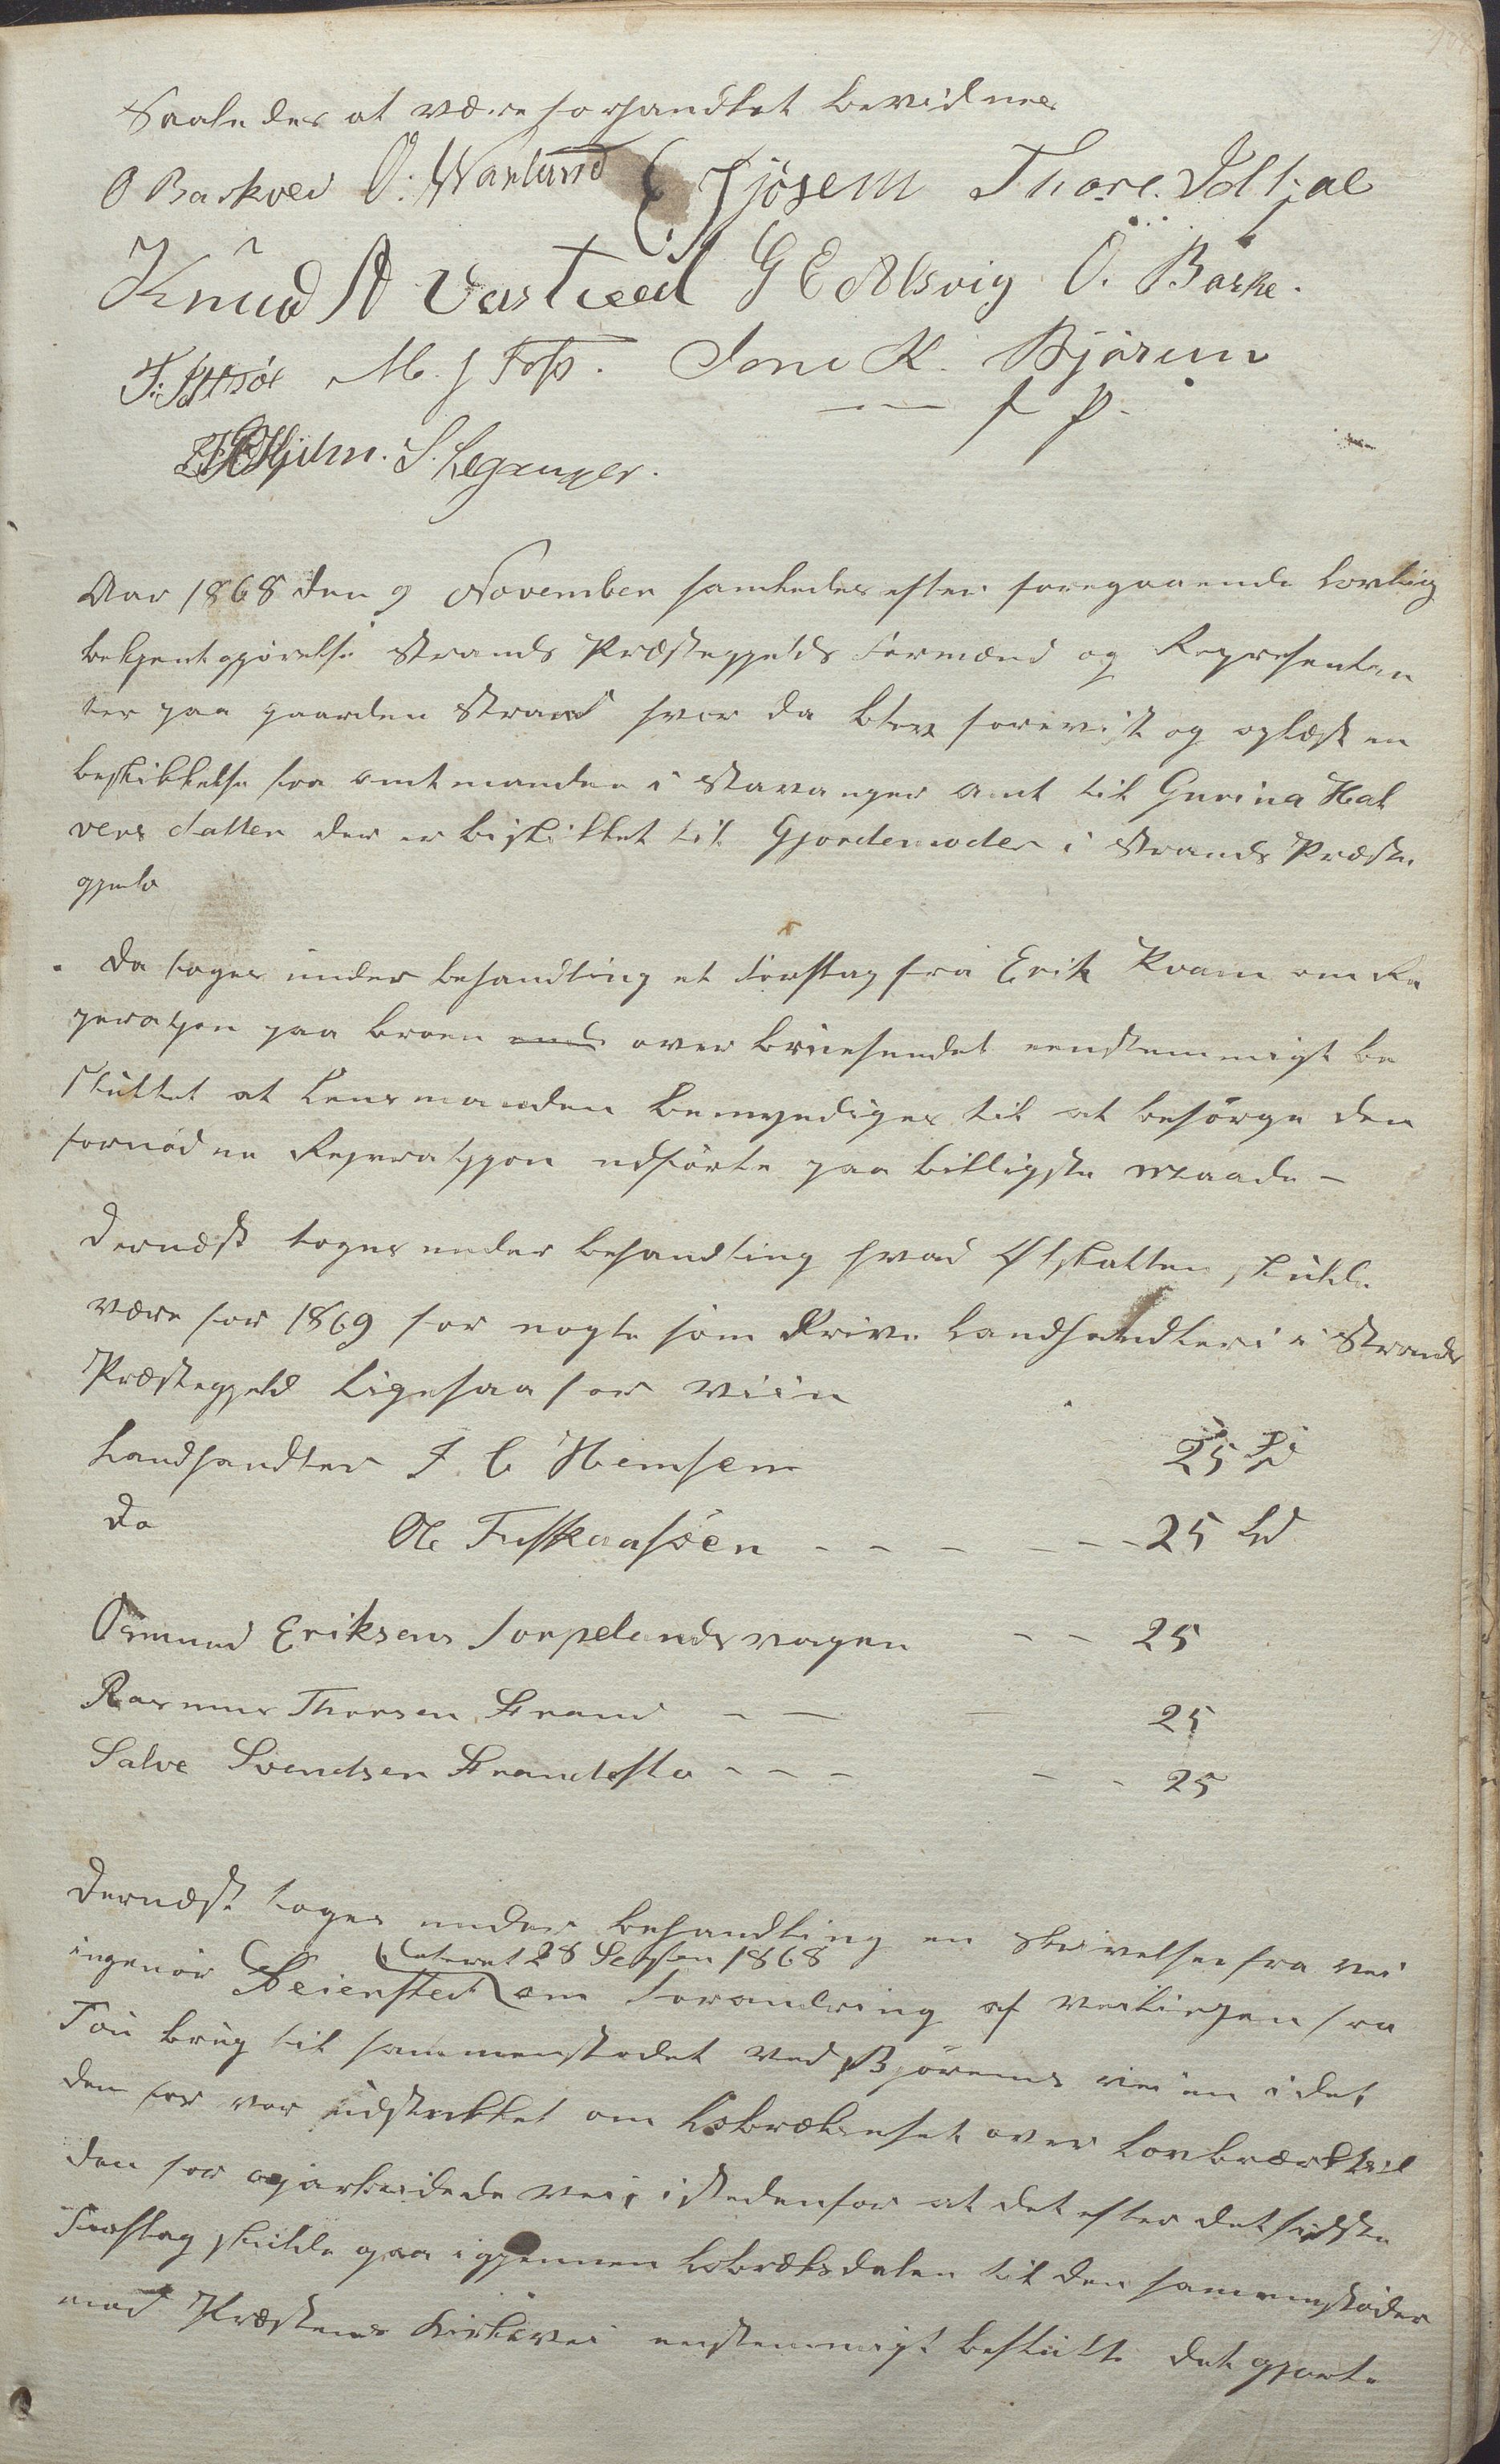 Saaledes at være forhandlet bevidnes
O Barkved O. Warland E Tjösem Thore. Idtjøe
Knud A Vastveed G E Alsvig O. Barke.
M. J Foss. Jone K. Bjørem
f p.
Aar 1868 den 9 November samledes efter foregaaende lovlig
bekjentgjørelse Strands Præstegjelds Formænd og Represendan
ter paa gaarden Strand hvor da blev forevist og oplæst en
beskikkelse fra amtmanden i Stavanger Amt til Gurina Hal
vers datter der er beskikket til Gjordemoder i Strands Præste
gjeld
Da toges under behandling et Forslag fra Erik Kvam om Re
peratjon paa broen over eenstemmigt be
sluttet at Lensmanden bemyndiges til at besørge den
fornødne Reperatjon udførte paa billigste maade –
Dernæst toges under behandling hvad Ølskatten skulde
være for 1869 for nogle som Drive Landhandleri i Strands
Præstegjeld Ligesaa for Viin
Landhandler J. C Hemsem 25 Spd
Do Ole Fiskaasøen - - - - - - 25 Spd
Osmund Eriksens Sorpelandsvagen - - 25
Rasmus Thorsen Strand - - - 25
Salve Svendsen Strandstø - - - - - 25
Dernæst toges under behandling en skrivelse fra Vei
dateret 28 Septem 1868
ingeniør Beiersted om Forandring af Veiliniejen fra
Tou brug til sammenstødet ved Bjørems veien i det
den før var udstukket om over
den før oparbeidede vei, istedenfor at det efter det sidste
Forslag skulde gaa igjennem til den sammenstøder
med Præstens Kirkevei enstemmigt besluttet det gjorte